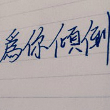 為你傾倒